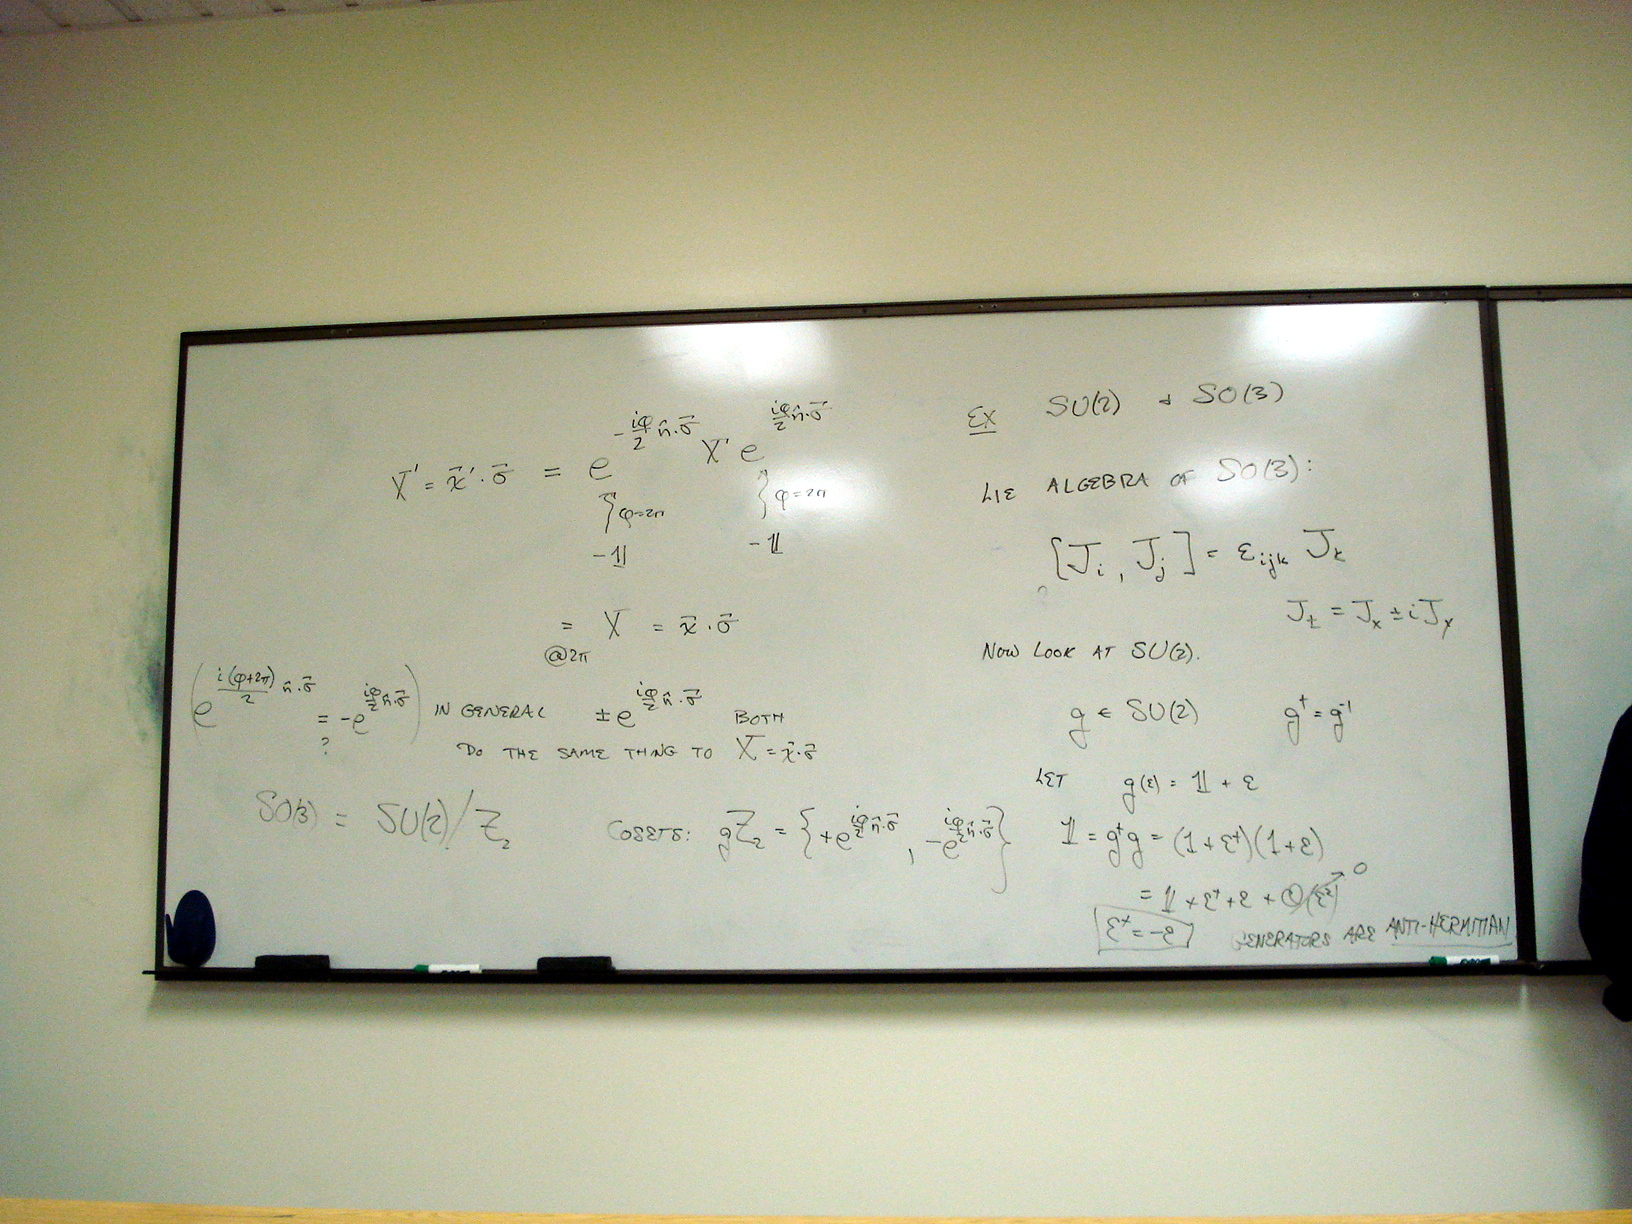 X' = x⃗'·σ⃗ = e^{-iφ/2 n̂·σ⃗} X e^{iφ/2 n̂·σ⃗}
φ=2π φ=2π
-𝟙 -𝟙
= X = x⃗·σ⃗
@2π
(e^{i(φ+2π)/2 n̂·σ⃗} = -e^{iφ/2 n̂·σ⃗}) IN GENERAL ±e^{iφ/2 n̂·σ⃗} BOTH
?
DO THE SAME THING TO X = x⃗·σ⃗
SO(3) = SU(2)/Z₂ COSETS: gZ₂ = {+e^{iφ/2 n̂·σ⃗}, -e^{iφ/2 n̂·σ⃗}}
EX SU(2) & SO(3)
LIE ALGEBRA OF SO(3):
[J_i, J_j] = ε_{ijk} J_k
J_± = J_x ± iJ_y
NOW LOOK AT SU(2).
g ∈ SU(2) g† = g⁻¹
LET g(ε) = 𝟙 + ε
𝟙 = g†g = (1+ε†)(1+ε)
= 𝟙 + ε† + ε + O(ε²) → 0
ε† = -ε GENERATORS ARE ANTI-HERMITIAN